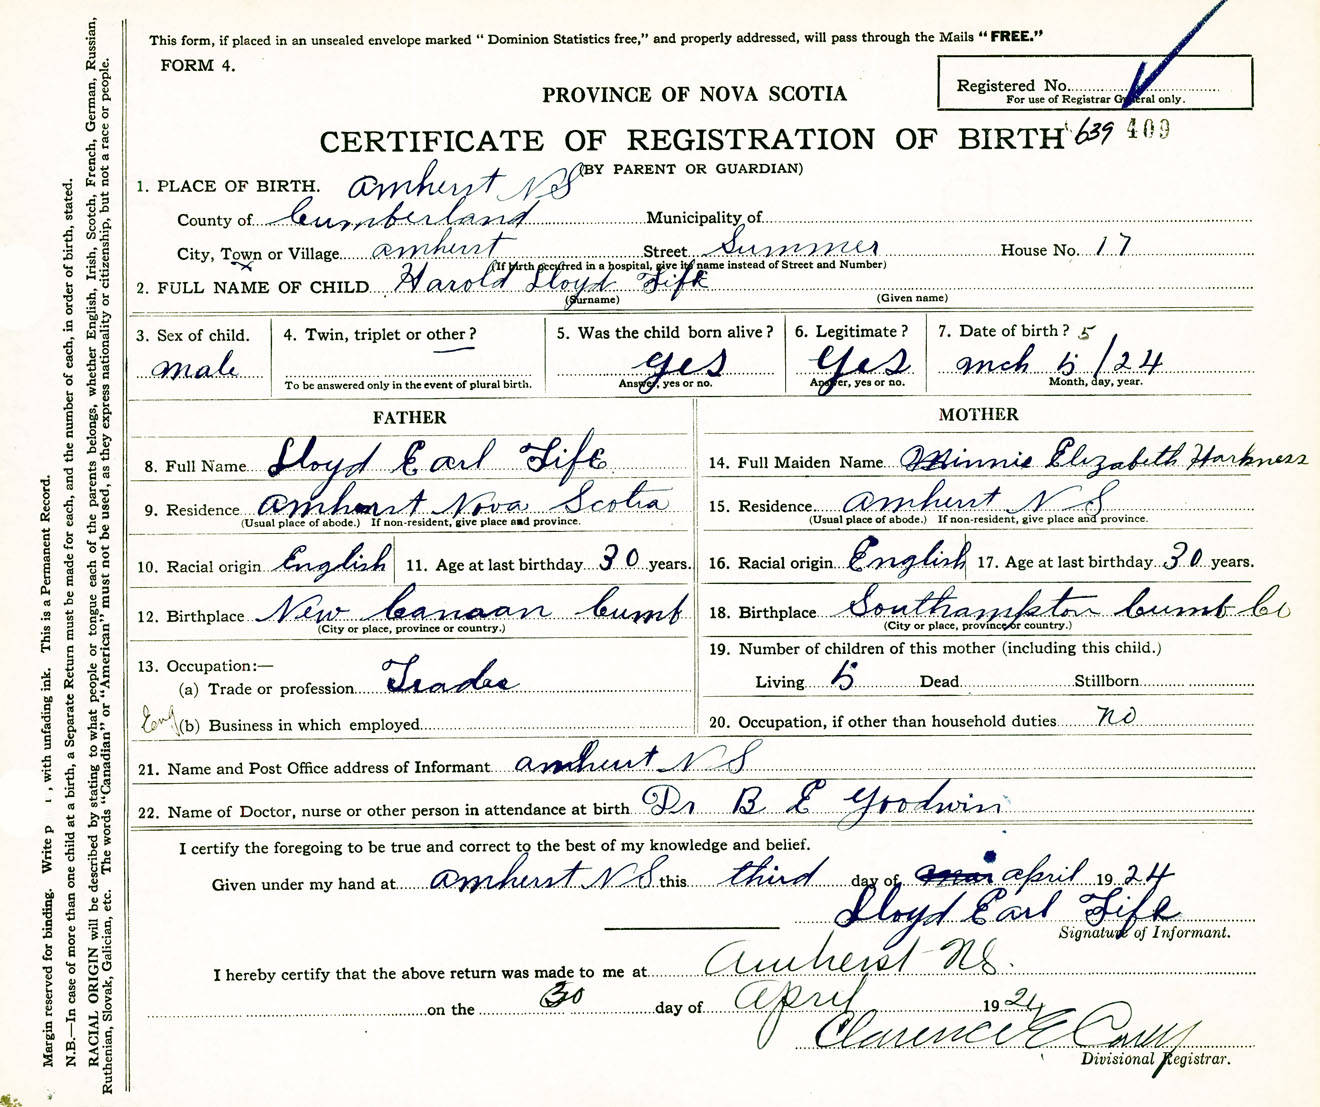 This form, if placed in an unsealed envelope marked “ Dominion Statistics free,” and properly addressed, will pass through the Mails “FREE.”
FORM 4.
Registered No.
For use of Registrar General only.
PROVINCE OF NOVA SCOTIA
CERTIFICATE OF REGISTRATION OF BIRTH 639 409
(BY PARENT OR GUARDIAN)
1. PLACE OF BIRTH. Amherst N S
County of Cumberland Municipality of
City, Town or Village Amherst Street Summer House No. 17
(If birth occurred in a hospital, give its name instead of Street and Number)
2. FULL NAME OF CHILD Harold Lloyd Fife
(Surname) (Given name)
3. Sex of child. 4. Twin, triplet or other ? 5. Was the child born alive ? 6. Legitimate ? 7. Date of birth ? 5
male yes yes mch 5/24
To be answered only in the event of plural birth. Answer, yes or no. Answer, yes or no. Month, day, year.
FATHER MOTHER
8. Full Name Lloyd Earl Fife 14. Full Maiden Name Minnie Elizabeth Harkness
9. Residence Amherst Nova Scotia 15. Residence Amherst N S
(Usual place of abode.) If non-resident, give place and province. (Usual place of abode.) If non-resident, give place and province.
10. Racial origin English 11. Age at last birthday 30 years. 16. Racial origin English 17. Age at last birthday 30 years.
12. Birthplace New Canaan Cumb 18. Birthplace Southampton Cumb Co
(City or place, province or country.) (City or place, province or country.)
13. Occupation:— 19. Number of children of this mother (including this child.)
(a) Trade or profession Trader Living 5 Dead Stillborn
Eng (b) Business in which employed 20. Occupation, if other than household duties no
21. Name and Post Office address of Informant Amherst N S
22. Name of Doctor, nurse or other person in attendance at birth Dr B E Goodwin
I certify the foregoing to be true and correct to the best of my knowledge and belief.
Given under my hand at Amherst N S this third day of April 1924
Lloyd Earl Fife
Signature of Informant.
I hereby certify that the above return was made to me at Amherst NS.
on the 30 day of April 1924
Clarence E
Divisional Registrar.
Margin reserved for binding. Write , with unfading ink. This is a Permanent Record.
N.B.—In case of more than one child at a birth, a Separate Return must be made for each, and the number of each, in order of birth, stated.
RACIAL ORIGIN will be described by stating to what people or tongue each of the parents belongs, whether English, Irish, Scotch, French, German, Russian,
Ruthenian, Slovak, Galician, etc. The words “Canadian” or “American” must not be used, as they express nationality or citizenship, but not a race or people.